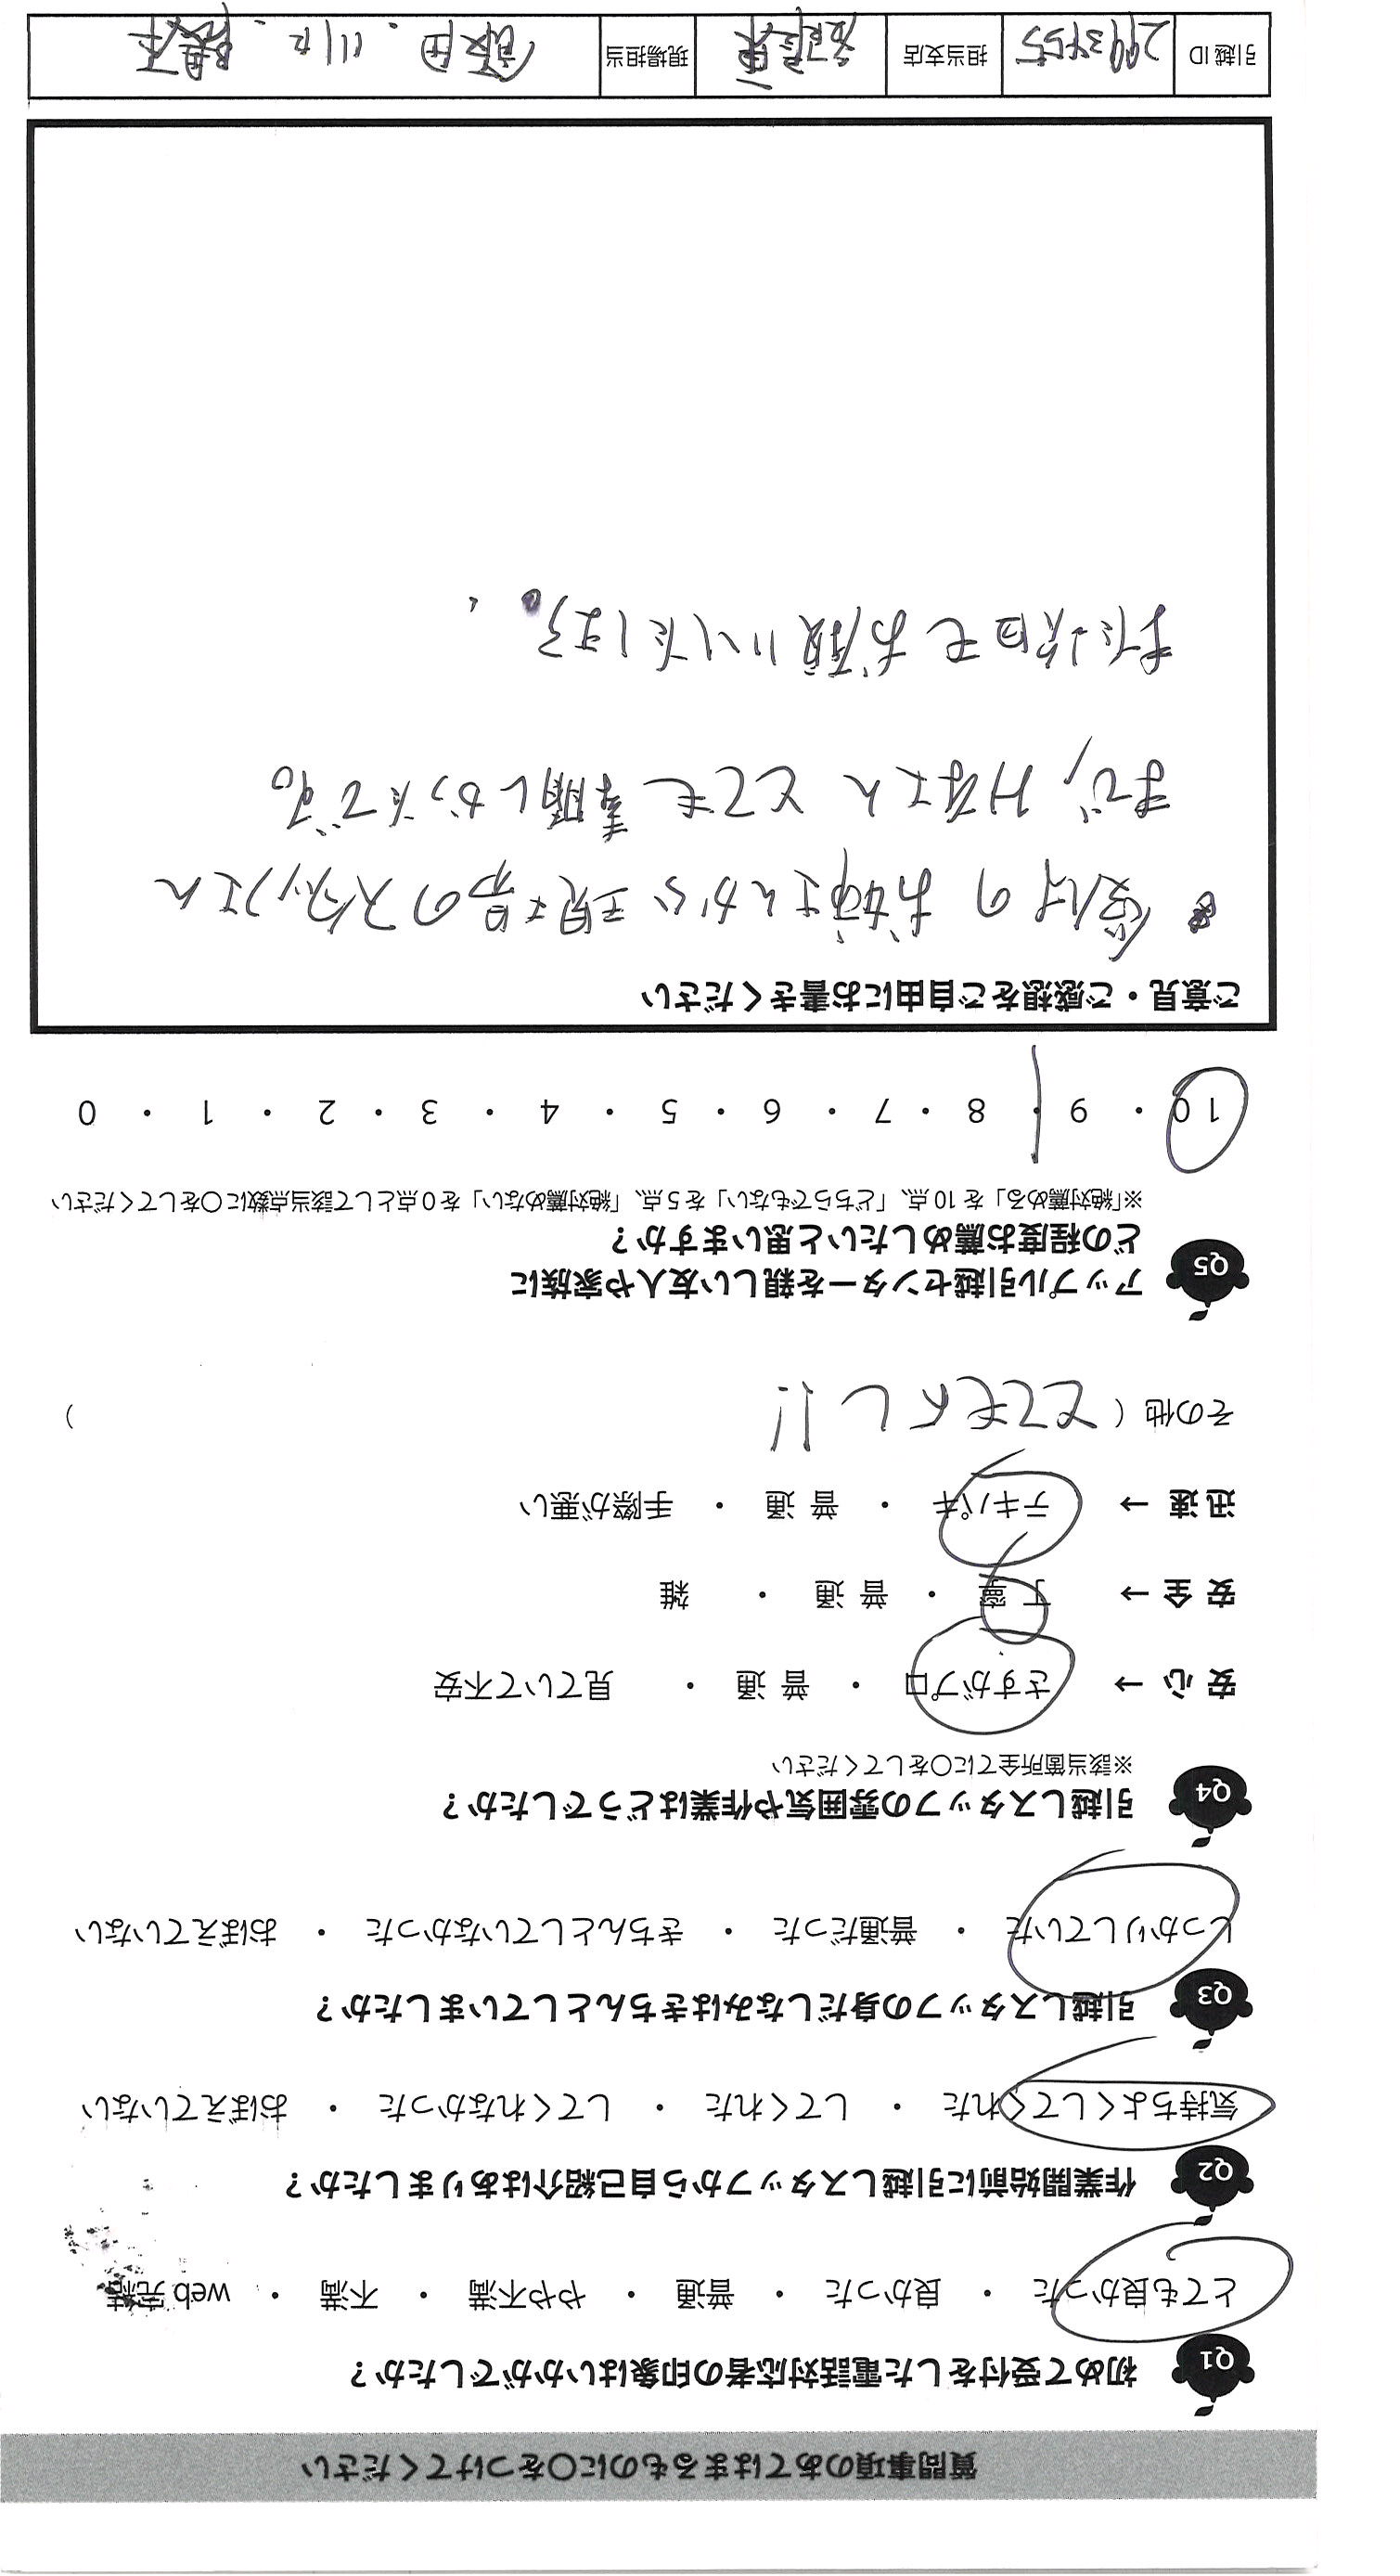 質問事項のあてはまるものに〇をつけてください
Q1 初めて受付をした電話対応者の印象はいかがでしたか？
とても良かった ・ 良かった ・ 普通 ・ やや不満 ・ 不満 ・ web完結
Q2 作業開始前に引越しスタッフから自己紹介はありましたか？
気持ちよくしてくれた ・ してくれた ・ してくれなかった ・ おぼえていない
Q3 引越しスタッフの身だしなみはきちんとしていましたか？
しっかりしていた ・ 普通だった ・ きちんとしていなかった ・ おぼえていない
Q4 引越しスタッフの雰囲気や作業はどうでしたか？
※該当箇所全てに〇をしてください
安心 → さすがプロ ・ 普通 ・ 見ていて不安
安全 → 丁寧 ・ 普通 ・ 雑
迅速 → テキパキ ・ 普通 ・ 手際が悪い
その他（とてもよし!!）
Q5 アップル引越センターを親しい友人や家族に
どの程度お薦めしたいと思いますか？
※「絶対薦める」を10点、「どちらでもない」を5点、「絶対薦めない」を0点として該当点数に〇をしてください
10 ・ 9 ・ 8 ・ 7 ・ 6 ・ 5 ・ 4 ・ 3 ・ 2 ・ 1 ・ 0
ご意見・ご感想をご自由にお書きください
受付のお姉さんから現場のスタッフさん
まで、皆さんとても素晴しかったです。
また次回もお願いいたします。
引越ID 2993455 担当支店 名古屋 現場担当 飯田・